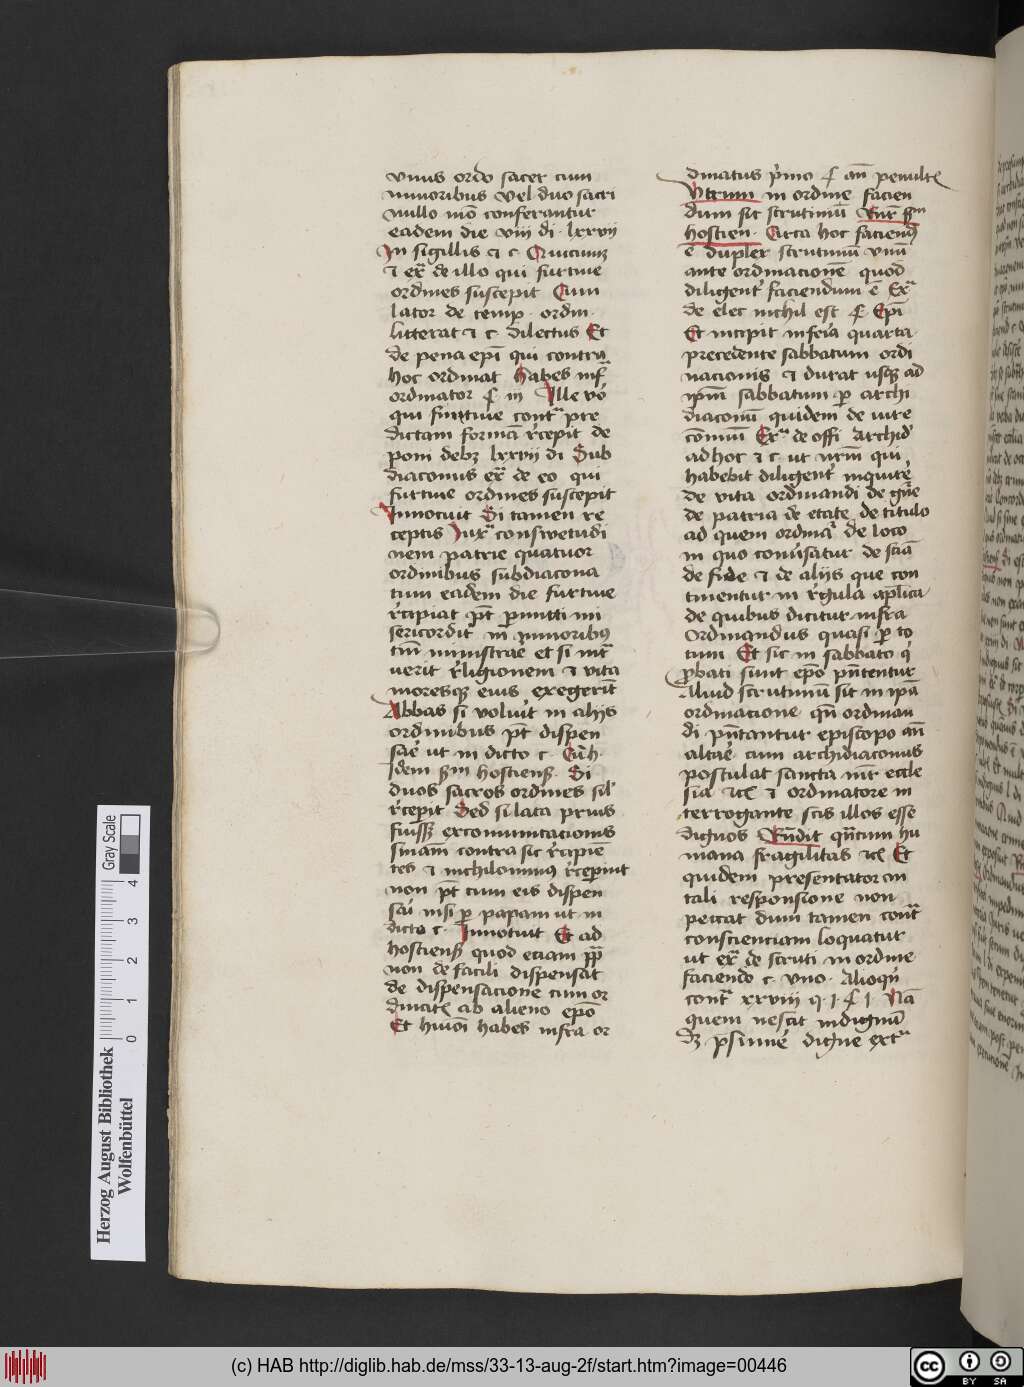 vnus ordo sacer cum
minoribus vel duo sacri
nullo mō conferantur
eadem die viij di. lxxvij
In sigillis ⁊ c. Cruciunt
⁊ ex̄ de illo qui furtiue
ordines suscepit Cum
lator de temp. ordin.
litterat ⁊ c. dilectus Et
de pena epī qui contra
hoc ordinat habes inf̄
ordinator ꝭ iij Ille vo
qui furtiue contᵃ pre
dictam formā r̄cepit de
poni debꝫ lxxvij di Sub
diaconus ex̄ de eo qui
furtiue ordines suscepit
Innotuit Si tamen re
ceptis Iuxᵃ conswetudi
nem patrie quatuor
ordinibus subdiacona
tum eadem die furtiue
r̄cipiat pt̄ pmitti mi
sericordit̾ in minoribꝰ
tm̄ ministrare et si intᵃ
uerit r̄ligionem ⁊ vita
moresqꝫ eius exegerīt
Abbas si voluit in alijs
ordinibus pt̄ dispen
saē ut in dicto c. Cū h.
Idem scdm hostiens̄. Si
duos sacros ordines sil̾
r̄cepit Sed si lata prius
fuisꝫ excommunicacionis
sniam contra sic r̄cipiē
tes ⁊ nichilominꝰ r̄ceperint
non pt̄ cum eis dispen
sari nisi ꝑ papam ut in
dicto c. Innotuit Et ad
hostiens̄ quod eciam pp
non de facili dispensat
de dispensacione cum or
dinatꝭ ab alieno epō
Et huiōi habes infra or
dinatus p̾mo ꝭ an̄ penultꝭ
Vtrum in ordine facien
dum sit scrutiniū Rn̄r scdm
hostien. Circa hoc faciend̄
ē duplex scrutiniū vnū
ante ordinacionē quod
diligent̾ faciendum ē Exᵃ
de elec nichil est ꝭ Epī
Et incipit in feria quarta
precedente sabbatum ordi
nacionis ⁊ durat usqꝫ ad
ipm̄ sabbatum ꝑ archi
diaconū quidem de iure
cōmuni Exᵃ de offi archid̾
ad hoc ⁊ c. ut nrm̄ qui
habebit diligent̾ inquirē
de vita ordinandi de gn̄e
de patria de etate de titulo
ad quem ordinat̾ de loco
in quo conūsatur de sciā
de fide ⁊ de alijs que con
tinentur in r̄gula apl̄ica
de quibus dicitur infra
Ordinandus quasi ꝑ to
tum Et sic in sabbato q̄
ꝓbati sunt epō pn̄tentur
Aliud scrutiniū sit in ipā
ordinacione qn̄ ordinan
di pn̄tantur episcopo an̄
altare cum archidiaconus
postulat sancta mr̄ eccle
sia ⁊cꝭ ⁊ ordinatore in
terrogante scis illos esse
dignos Rn̄dit qn̄tum hu
mana fragilitas ⁊cꝭ Et
quidem presentator in
tali responsione non
peccat dum tamen contᵃ
conscienciam loquatur
ut ex̄ de scruti in ordine
faciendo c. vno. Alioqn̄
contᵃ xxviij q. j. ꝭ j Nā
quem nescit indignū
dꝫ psumē digne extᵃ
Herzog August Bibliothek
Wolfenbüttel
Gray Scale
0 1 2 3 4
(c) HAB http://diglib.hab.de/mss/33-13-aug-2f/start.htm?image=00446
cc BY SA